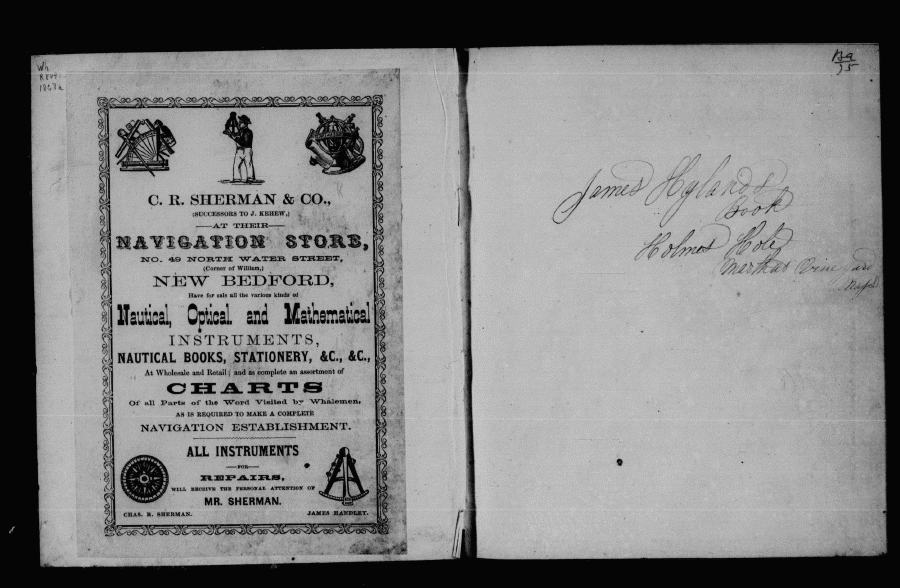 Wh
C. R. SHERMAN & CO.,
(SUCCESSORS TO J. KEHEW,)
AT THEIR
NAVIGATION STORE,
NO. 49 NORTH WATER STREET,
(Corner of William,)
NEW BEDFORD,
Have for sale all the various kinds of
Nautical, Optical and Mathematical
INSTRUMENTS,
NAUTICAL BOOKS, STATIONERY, &C., &C.,
At Wholesale and Retail; and as complete an assortment of
CHARTS
Of all Parts of the Word Visited by Whalemen,
AS IS REQUIRED TO MAKE A COMPLETE
NAVIGATION ESTABLISHMENT.
ALL INSTRUMENTS
FOR
REPAIRS,
WILL RECEIVE THE PERSONAL ATTENTION OF
MR. SHERMAN.
CHAS. R. SHERMAN.
JAMES HANDLEY.
James Hylands
Book
Holmes Hole
Marthas Vineyard
Mass